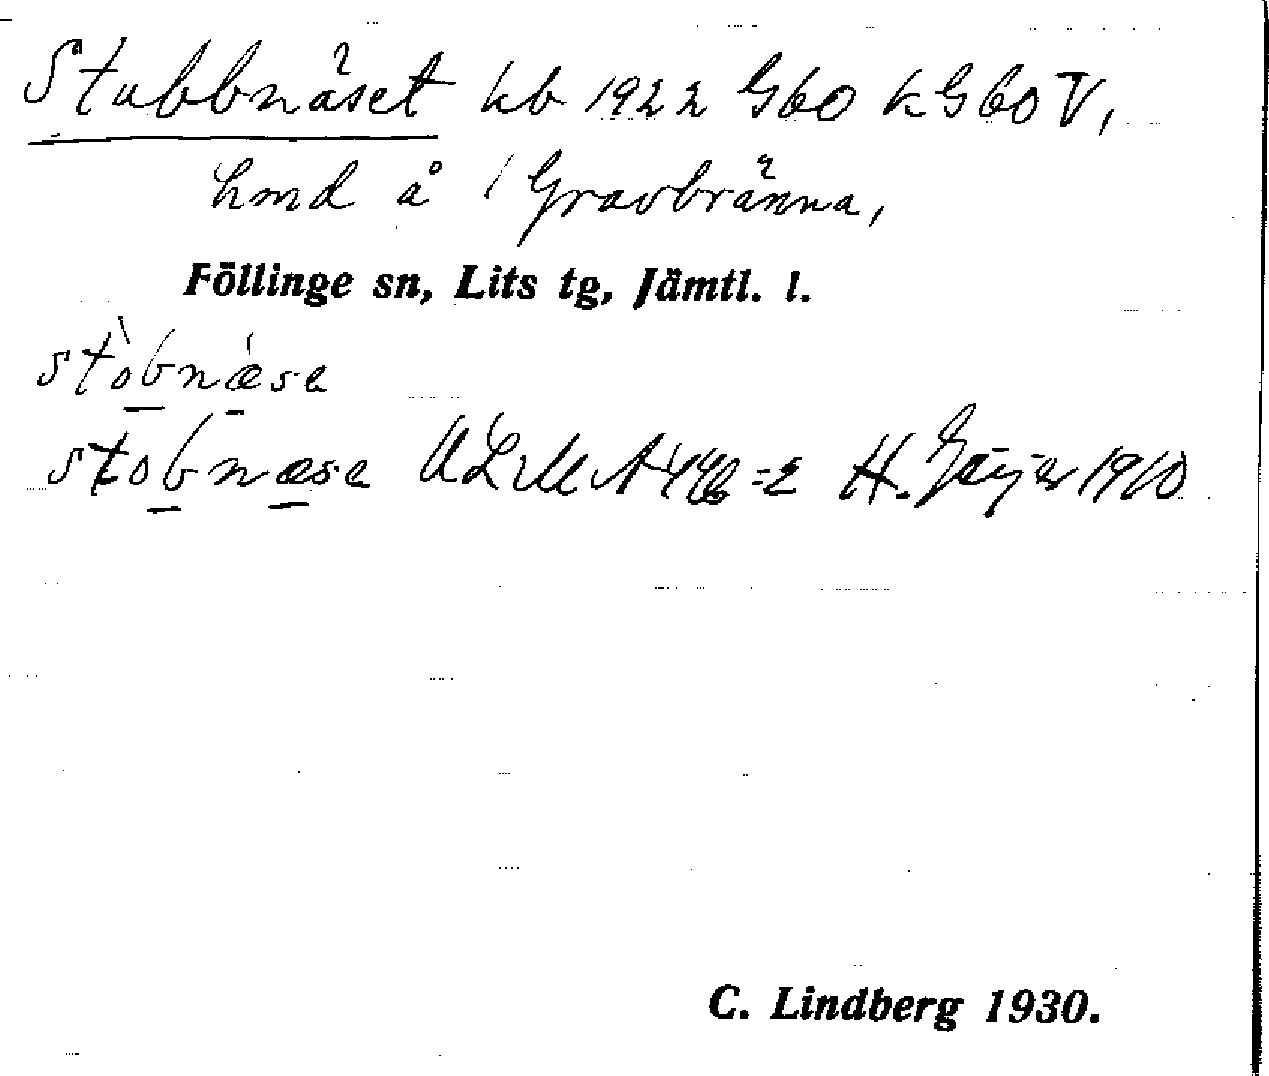 Stubbnäset kb 1922 G60 k G60 V,
hmd å 1 Gravbränna,
Föllinge sn, Lits tg, Jämtl. l.
stòbnǽse
stobnæse ULMA 446:2 H. Geijer 1910
C. Lindberg 1930.